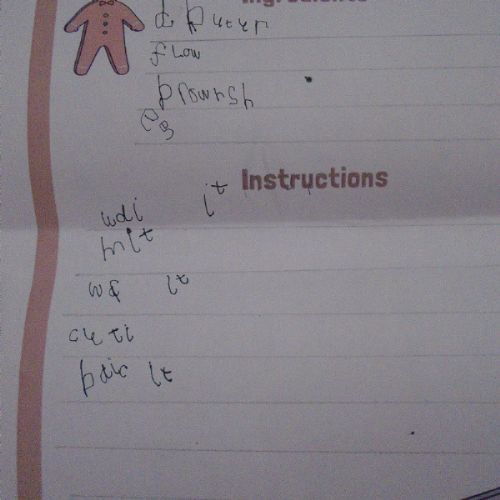 Ingredients
d buter
flow
brownsh
eg
Instructions
wdi it
mlt
we it
cu ti
bdic it